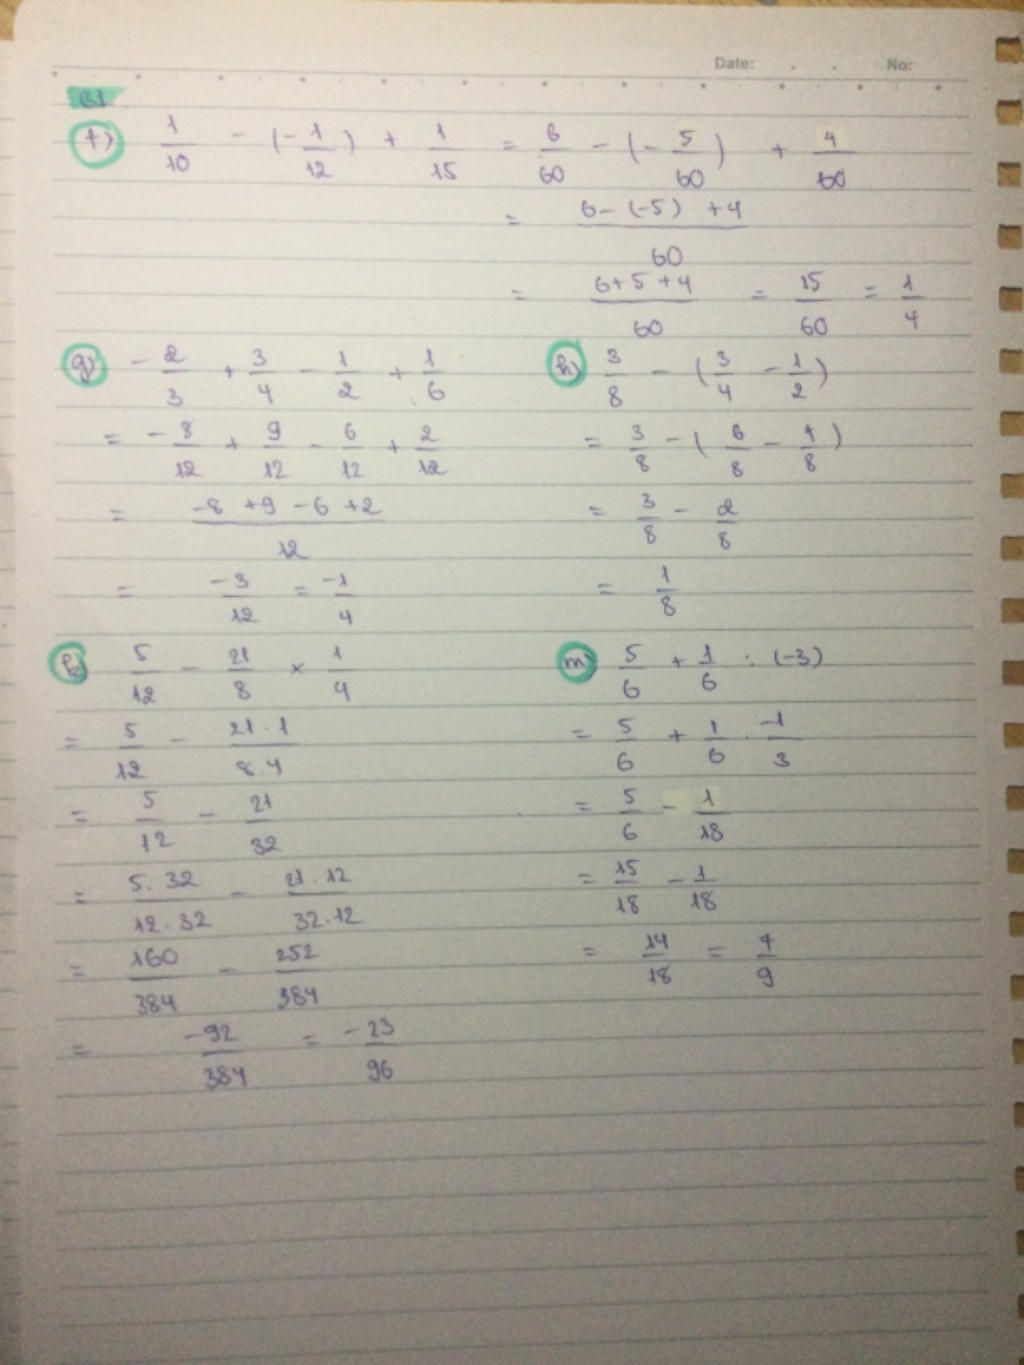 Date: . . No:
B1
f) 1/10 - (-1/12) + 1/15 = 6/60 - (-5/60) + 4/60
= 6-(-5) +4/60
= 6+5+4/60 = 15/60 = 1/4
g) -2/3 + 3/4 - 1/2 + 1/6
= -8/12 + 9/12 - 6/12 + 2/12
= -8+9-6+2/12
= -3/12 = -1/4
h) 3/8 - (3/4 - 1/2)
= 3/8 - (6/8 - 4/8)
= 3/8 - 2/8
= 1/8
k) 5/12 - 21/8 × 1/4
= 5/12 - 21.1/8.4
= 5/12 - 21/32
= 5.32/12.32 - 21.12/32.12
= 160/384 - 252/384
= -92/384 = -23/96
m) 5/6 + 1/6 : (-3)
= 5/6 + 1/6 . -1/3
= 5/6 - 1/18
= 15/18 - 1/18
= 14/18 = 7/9